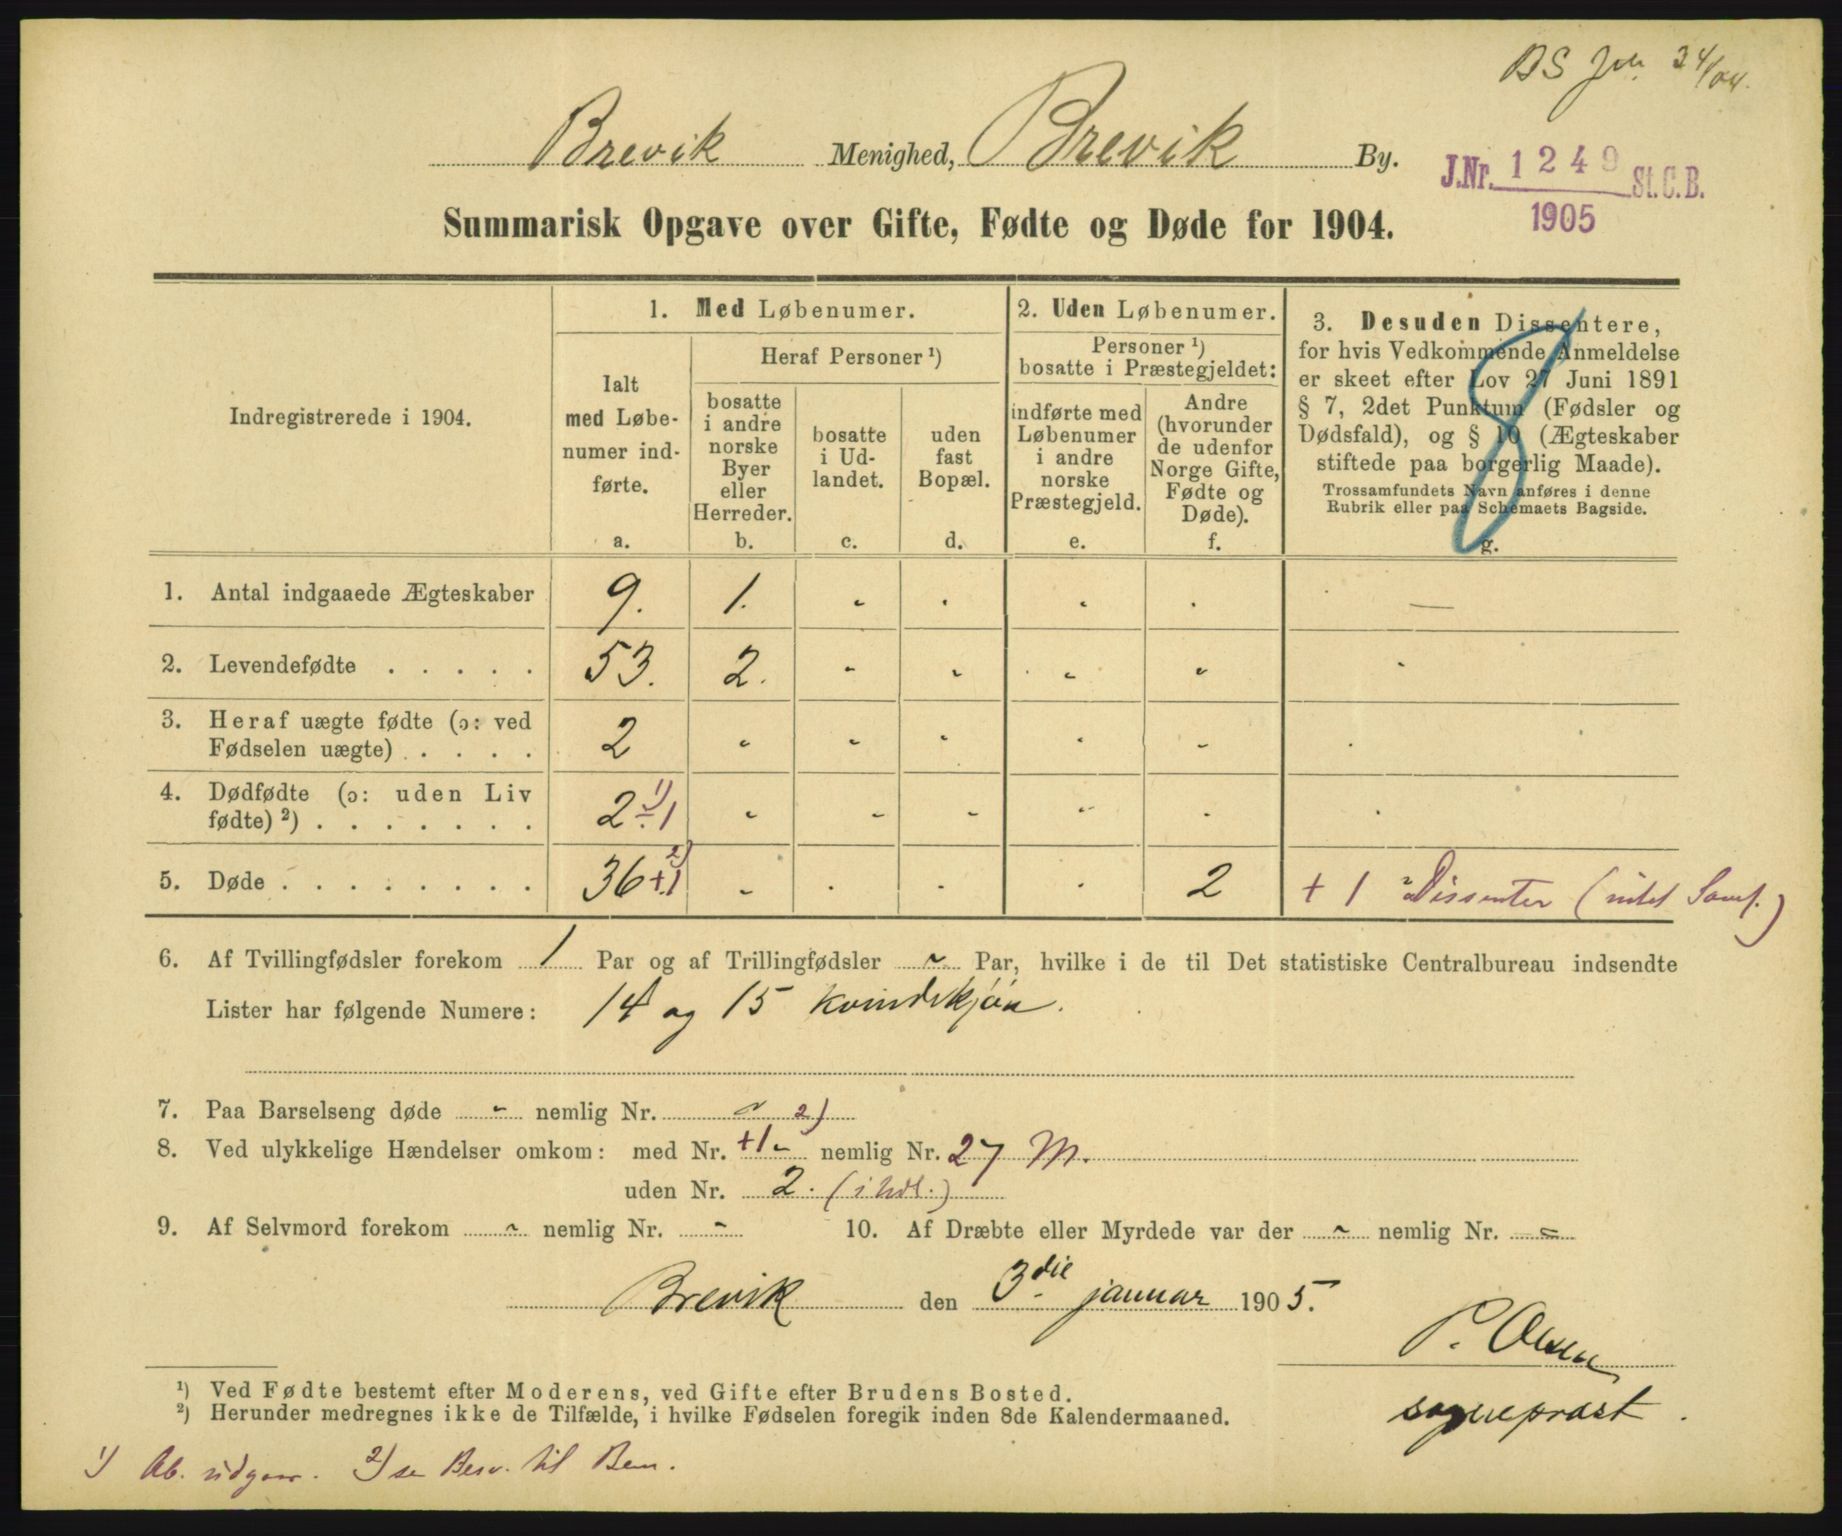 BS
Brevik Menighed, Brevik By.
J.Nr. 1249 St.C.B.
1905
Summarisk Opgave over Gifte, Fødte og Døde for 1904.
Indregistrerede i 1904.
1. Med Løbenumer.
Ialt
med Løbe-
numer ind-
førte.
a.
Heraf Personer ¹)
bosatte
i andre
norske
Byer
eller
Herreder.
b.
bosatte
i Ud-
landet.
c.
uden
fast
Bopæl.
d.
2. Uden Løbenumer.
Personer ¹)
bosatte i Præstegjeldet:
indførte med
Løbenumer
i andre
norske
Præstegjeld.
e.
Andre
(hvorunder
de udenfor
Norge Gifte,
Fødte og
Døde).
f.
3. Desuden Dissentere,
for hvis Vedkommende Anmeldelse
er skeet efter Lov 27 Juni 1891
§ 7, 2det Punktum (Fødsler og
Dødsfald), og § 10 (Ægteskaber
stiftede paa borgerlig Maade).
Trossamfundets Navn anføres i denne
Rubrik eller paa Schemaets Bagside.
g.
8
1. Antal indgaaede Ægteskaber 9. 1. „ . „ . —
2. Levendefødte . . . . . 53. 2. „ „ „ „ „
3. Heraf uægte fødte (ɔ: ved
Fødselen uægte) . . . . 2 „ „ „ „ „ .
4. Dødfødte (ɔ: uden Liv
fødte) ²) . . . . . . . 2 ÷1 ¹) „ „ „ „ . .
5. Døde . . . . . . . . 36 +1 ²) „ . . . 2 + 1 Dissenter (intet Samf.)
6. Af Tvillingfødsler forekom 1 Par og af Trillingfødsler „ Par, hvilke i de til Det statistiske Centralbureau indsendte
Lister har følgende Numere: 14 og 15 Kvindekjøn.
7. Paa Barselseng døde „ nemlig Nr. „ 2)
8. Ved ulykkelige Hændelser omkom: med Nr. +1 „ nemlig Nr. 27 M.
uden Nr. 2.
9. Af Selvmord forekom „ nemlig Nr. „ 10. Af Dræbte eller Myrdede var der „ nemlig Nr. „
Brevik den 3die januar 1905.
P. Olsen
sogneprest.
¹) Ved Fødte bestemt efter Moderens, ved Gifte efter Brudens Bosted.
²) Herunder medregnes ikke de Tilfælde, i hvilke Fødselen foregik inden 8de Kalendermaaned.
1) Ab. udgaar. 2) se Besv. til Bem.